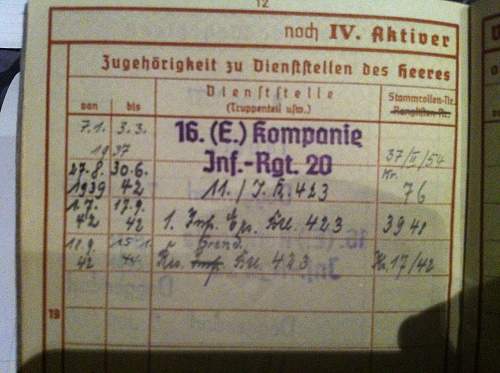 12
noch IV. Aktiver
Zugehörigkeit zu Dienststellen des Heeres
von
bis
Dienststelle
(Truppenteil usw.)
Stammrollen-Nr.
Ranglisten-Nr.
7.1. 3.3.
1937
16. (E.) Kompanie
Inf.-Rgt. 20
37/II/54
27.8. 30.6.
1939 42
11./J.R. 423
Nr.
76
1.7. 17.9.
42 42
1. Inf. Btl. 423
39 41
18.9. 15.1.
42 44
Grend.
Res. Inf. Btl. 423
Nr. 17/42
19